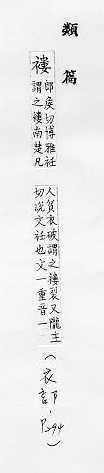 類篇
褸
郎侯切博雅衽
謂之褸南楚凡
人貧衣破謂之褸裂又隴主
切説文衽也文一重音一
(衣部·P.294)